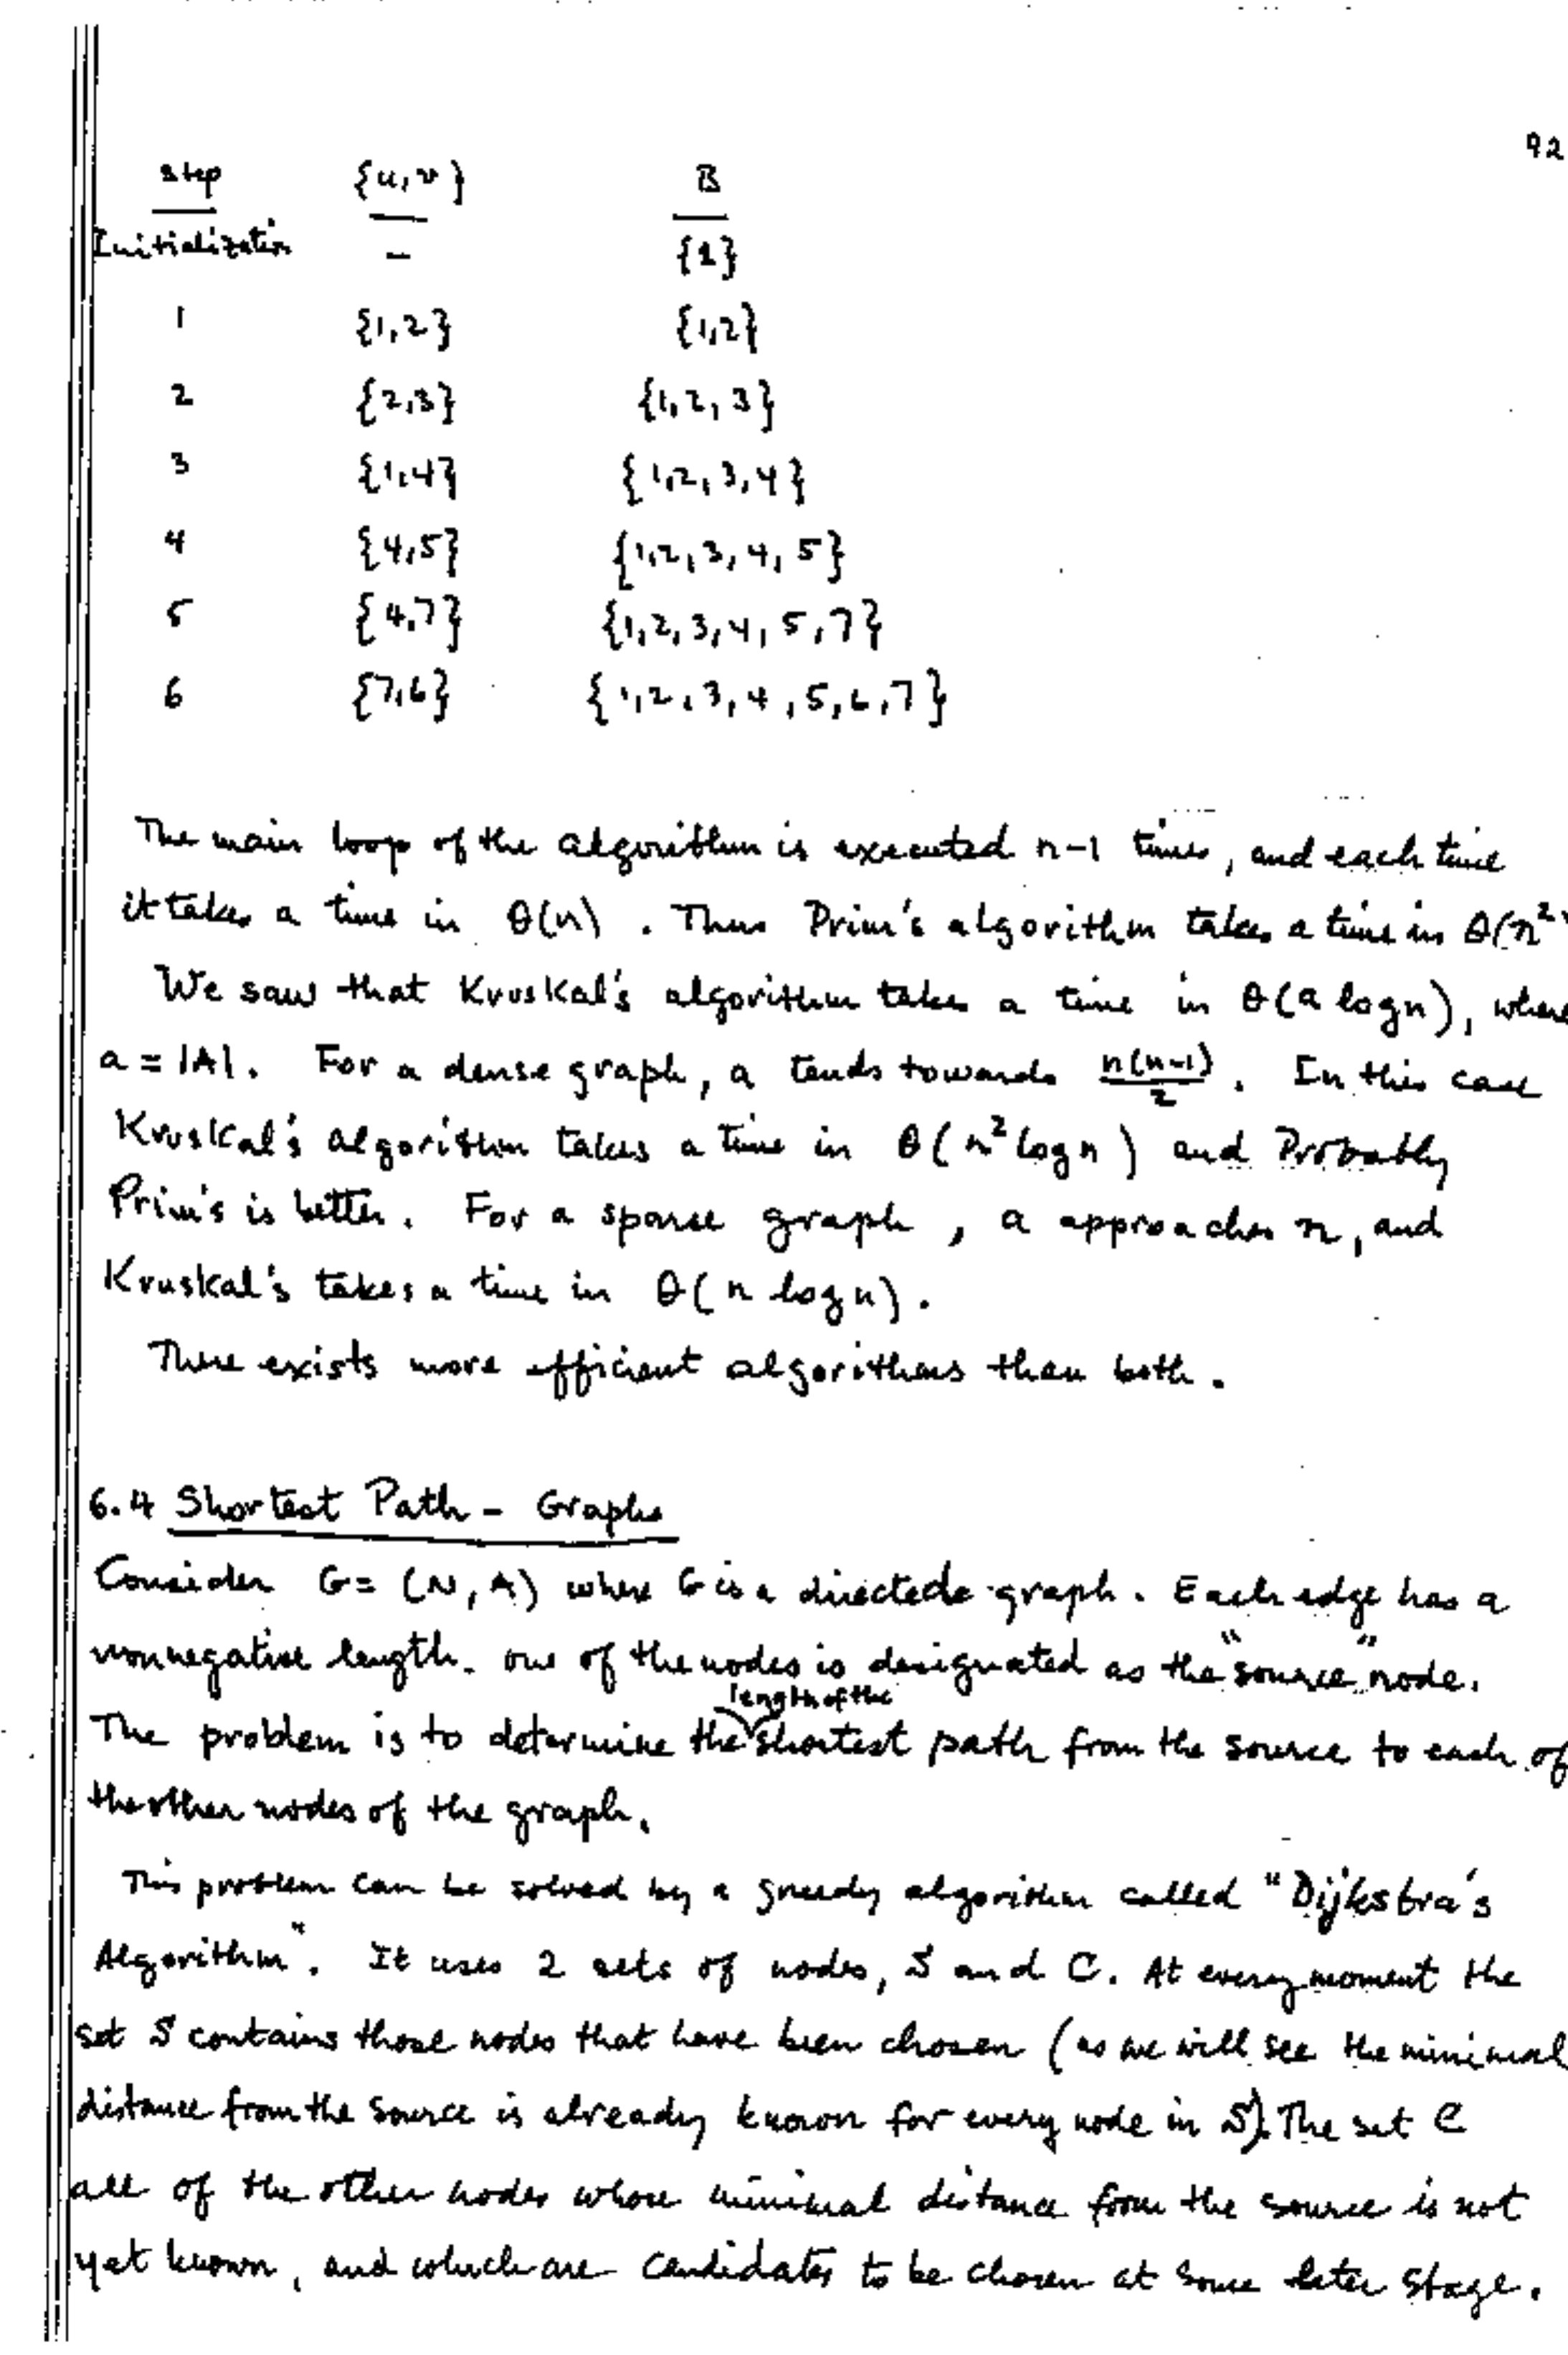 92
Step {u,v} B
Initialization – {1}
1 {1,2} {1,2}
2 {2,3} {1,2,3}
3 {1,4} {1,2,3,4}
4 {4,5} {1,2,3,4,5}
5 {4,7} {1,2,3,4,5,7}
6 {7,6} {1,2,3,4,5,6,7}
The main loop of the algorithm is executed n-1 times, and each time
it takes a time in θ(n). Thus Prim's algorithm takes a time in θ(n²
We saw that Kruskal's algorithm takes a time in θ(a log n), where
a = |A|. For a dense graph, a tends towards n(n-1)/2. In this case
Kruskal's algorithm takes a time in θ(n² log n) and Probably
Prim's is better. For a sparse graph, a approaches n, and
Kruskal's takes a time in θ(n log n).
There exists more efficient algorithms than both.
6.4 Shortest Path - Graphs
Consider G = (N, A) where G is a directede graph. Each edge has a
nonnegative length. one of the nodes is designated as the "source" node.
The problem is to determine the length of the shortest path from the source to each of
the other nodes of the graph.
This problem can be solved by a greedy algorithm called "Dijkstra's
Algorithm". It uses 2 sets of nodes, S and C. At every moment the
set S contains those nodes that have been chosen (as we will see the minimal
distance from the source is already known for every node in S). The set C
all of the other nodes whose minimal distance from the source is not
yet known, and which are candidates to be chosen at some later stage.